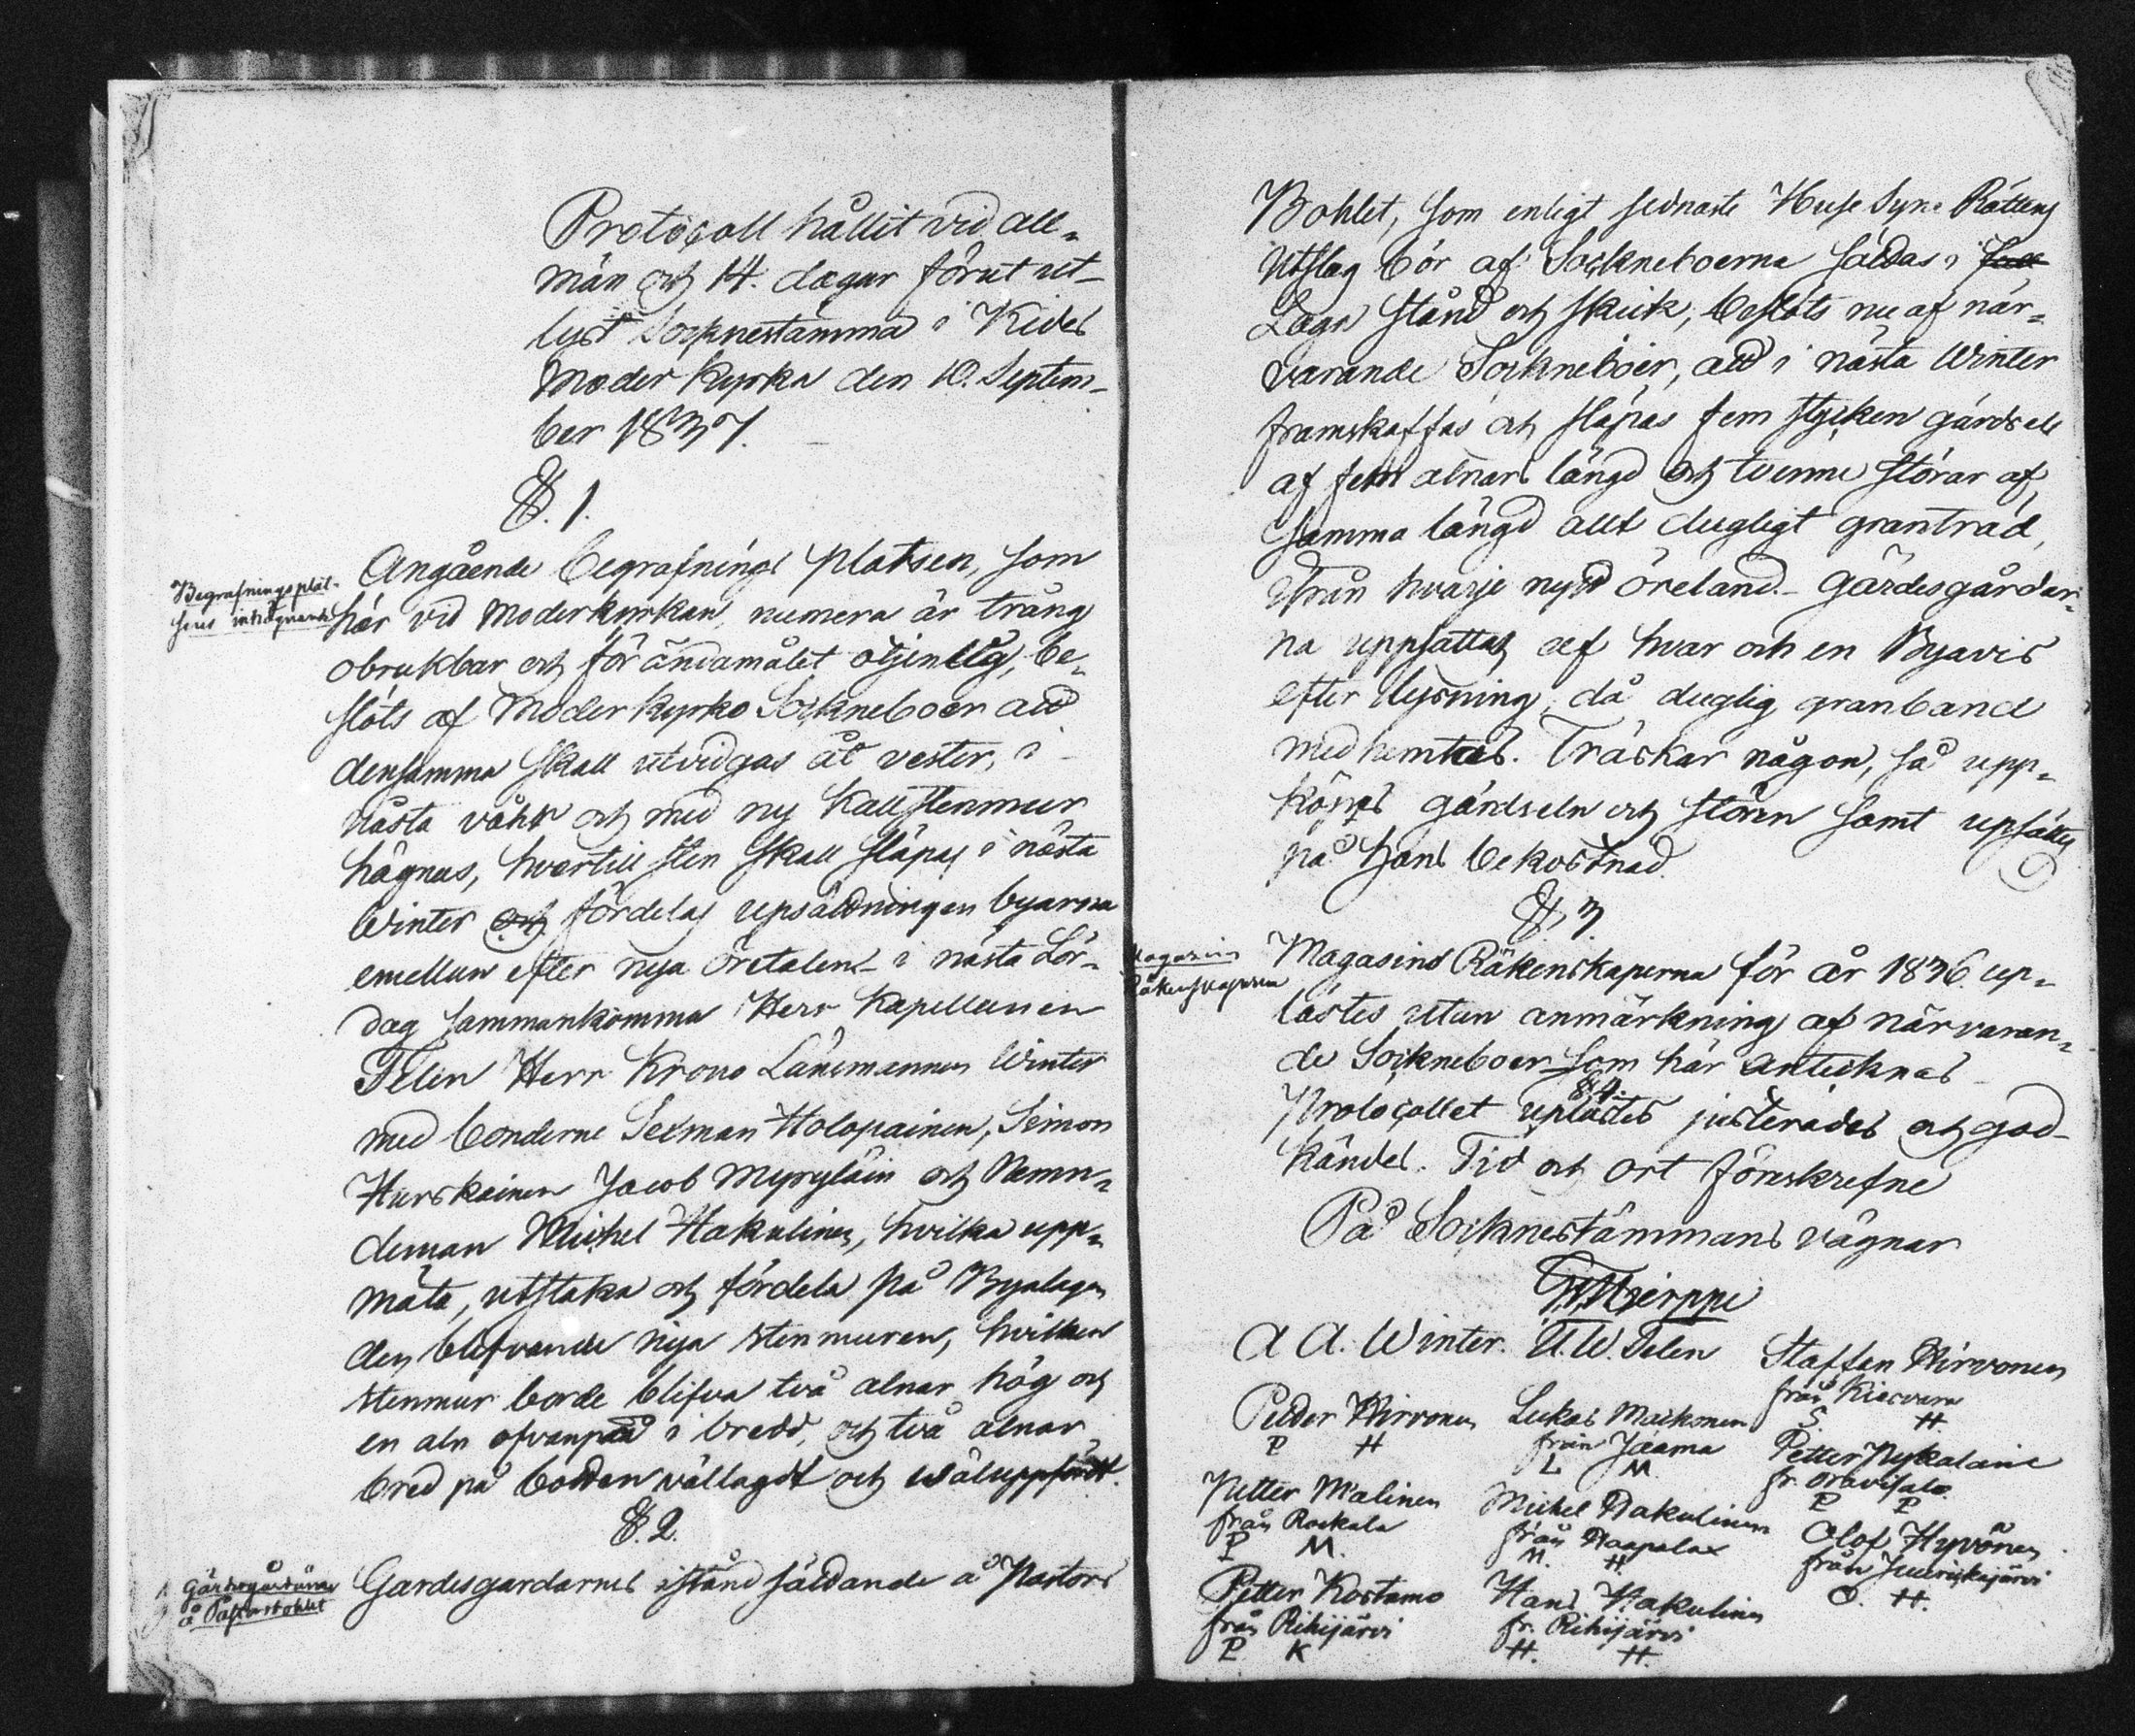 Protocoll hållit vid all-
män och 14. dagar förut ut-
lyst Socknestämma i Kides
Moder kyrka den 10. Septem-
ber 1837.
§. 1.
Begrafningsplat-
sens inhägnande
Angående begrafnings platsen, som
här vid Moderkyrkan, numera är trång
obrukbar och för ändamålet otjenlig, be-
slöts af Moderkyrko Sockneboer att
densamma skall utvidgas åt vester, i
nästa våhr och med ny kallstenmur
hägnas, hvartill sten skall släpas i nästa
Winter och fördelas upsättningen byarna
emellan efter nya öretalen i nästa Lör-
dag sammankomma Herr Kapellanen
Telén Herr Krono Länsmannen Winter
med bönderne Sexman Holopainen, Simon
Hurskainen Jacob Myryläin och Nemn-
deman Michel Hakulinen, hvilka upp-
mäta, utstaka och fördela på Byalagen
den blifvande nya stenmuren, hvilken
stenmur borde blifva två alnar hög och
en aln ofvanpå i bredd, och två alnar
bred på botten vällagdt och wäluppfördt.
§. 2.
Gärdesgårdarnas
å Pastorsbohlet
Gärdesgårdarnes iståndsättande å Pastors
Bohlet, som enligt sednaste Huse Syns Rättens
Utslag bör af Sockneboerna sättas i
Laga stånd och skick, beslöts nu af när-
varande Sockneboer, att i nästa Winter
framskaffas och släpas fem stycken gärdsel
af fem alnars längd och tvenne störar af
samma längd allt dugligt granträd,
ifrån hvarje nytt öreland. Gärdesgårdar-
na uppsättas af hvar och en Byavis
efter lysning, då duglig granband
medhemtas. Träskar någon, så upp-
köpes gärdseln och stören samt upsättes
på hans bekostnad.
§ 3.
Magasins
Räkenskaperna
Magasins Räkenskaperna för år 1836 up-
lästes utan anmärkning af närvaran-
de Sockneboer som här antecknas
§ 4.
Protocollet uplästes justerades och god-
kändes. Tid och ort föreskrefne
På Socknestämmans vägnar
A A. Winter. U.W. Telén Staffan Hirvonen
från Kiesvara
S H.
Petter Hirvonen Lukas Maikonen
P H från Jaama
L M
Petter Pykäläine
fr. Oravisalo
P P
Petter Malinen Michel Hakulinen
från Rockala från Haapalax
P M. M. H.
Olof Hyvönen
från Juurikkajärvi
O. H.
Petter Kostamo Hans Hakulinen
från Rihijärvi fr. Rihijärvi
P K H. H.